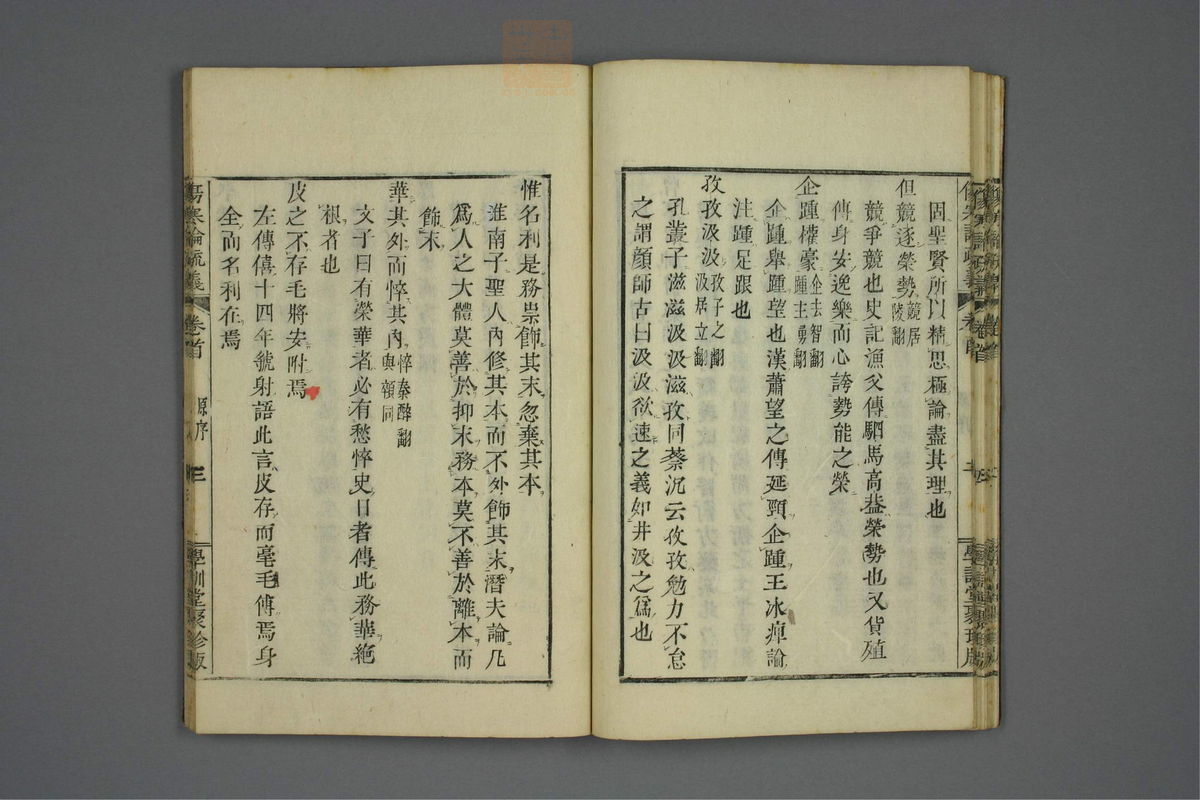 固聖賢所以精思極論盡其理也
但競逐榮勢競居陵翻
競爭競也史記漁父傳駟馬高葢榮勢也又貨殖
傳身安逸樂而心誇勢能之榮
企踵權豪企去智翻踵主勇翻
企踵舉踵望也漢蕭望之傳延頸企踵王冰痺論
注踵足跟也
孜孜汲汲孜子之翻汲居立翻
孔叢子滋滋汲汲滋孜同蔡沉云孜孜勉力不怠
之謂顔師古曰汲汲欲速之義如井汲之爲也
惟名利是務崇飾其末忽棄其本
淮南子聖人內修其本而不外飾其末潛夫論凡
爲人之大體莫善於抑末務本莫不善於離本而
飾末
華其外而悴其內悴秦醉翻與顇同
文子曰有榮華者必有愁悴史日者傳此務華絶
根者也
皮之不存毛將安附焉
左傳僖十四年虢射語此言皮存而毫毛傅焉身
全而名利在焉
傷寒論疏義 卷首 原序 三 學訓堂聚珍版